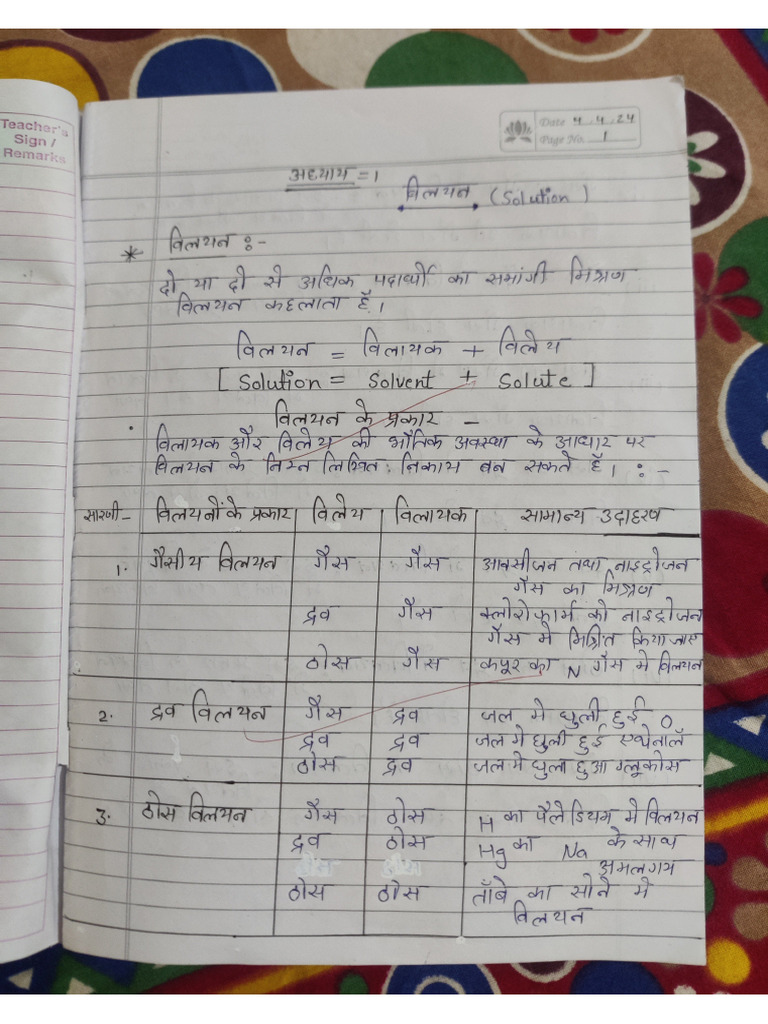 Teacher's
Sign /
Remarks
Date 4.4.24
Page No. 1
अध्याय = 1
विलयन (Solution)
* विलयन :-
दो या दो से अधिक पदार्थो का समांगी मिश्रण
विलयन कहलाता है।
विलयन = विलायक + विलेय
[ Solution = Solvent + Solute ]
विलयन के प्रकार -
विलायक और विलेय की भौतिक अवस्था के आधार पर
विलयन के निम्न लिखित निकाय बन सकते है। :-
सारणी- विलयनों के प्रकार विलेय विलायक सामान्य उदाहरण
1. गैसीय विलयन गैस गैस आक्सीजन तथा नाइट्रोजन
गैस का मिश्रण
द्रव गैस क्लोरोफार्म को नाइट्रोजन
गैस मे मिश्रित किया जाए
ठोस गैस कपूर का N गैस मे विलयन
2. द्रव विलयन गैस द्रव जल मे घुली हुई O
द्रव द्रव जल मे घुली हुई एथेनालॅ
ठोस द्रव जल मे घुला हुआ ग्लूकोस
3. ठोस विलयन गैस ठोस H का पैलेडियम मे विलयन
द्रव ठोस Hg का Na के साथ
अमलगम
ठोस ठोस ताँबे का सोने मे
विलयन